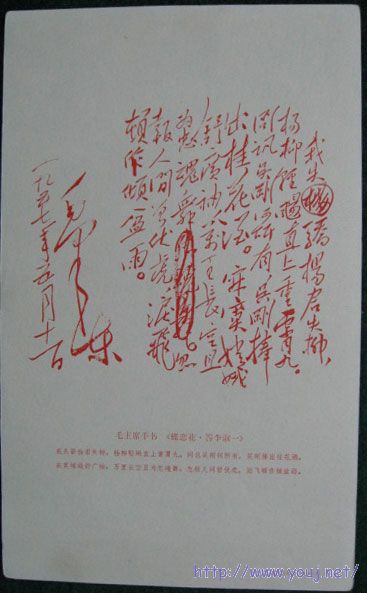 我失骄楊君失柳，
楊柳輕颺直上重霄九。
问讯吴刚何所有，吴刚捧
出桂花酒。寂寞嫦娥
舒廣袖，万里長空且
為忠魂舞。忽
報人间曾伏虎，淚飛
頓作傾盆雨。
毛澤東
一九五七年五月十一日
毛主席手书 《蝶恋花·答李淑一》
我失骄杨君失柳，杨柳轻飏直上重霄九。问讯吴刚何所有，吴刚捧出桂花酒。
寂寞嫦娥舒广袖，万里长空且为忠魂舞。忽报人间曾伏虎，泪飞顿作倾盆雨。
http://www.youj.net/